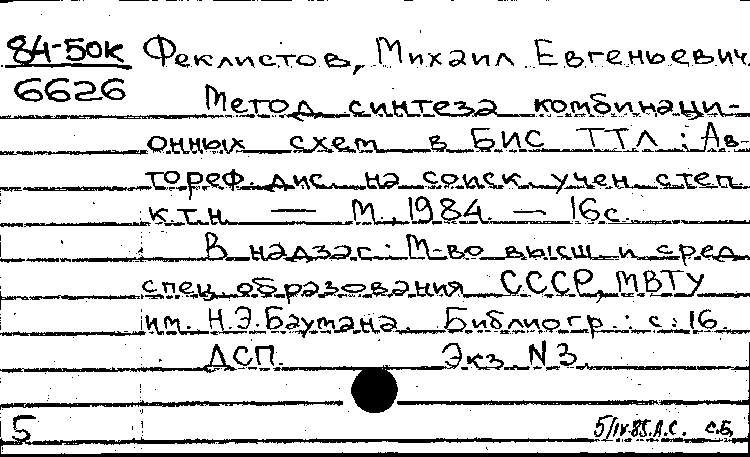 84-50к Феклистов, Михаил Евгеньевич
6626
Метод синтеза комбинаци-
онных схем в БИС ТТЛ : Ав-
тореф. дис. на соиск. учен. степ.
к.т.н. — М., 1984. — 16с.
В надзаг.: М-во высш. и сред.
спец. образования СССР, МВТУ
им. Н.Э.Баумана. Библиогр.: с. 16.
ДСП. Экз. N 3.
5 5/IV-85. А.С. С.Б.